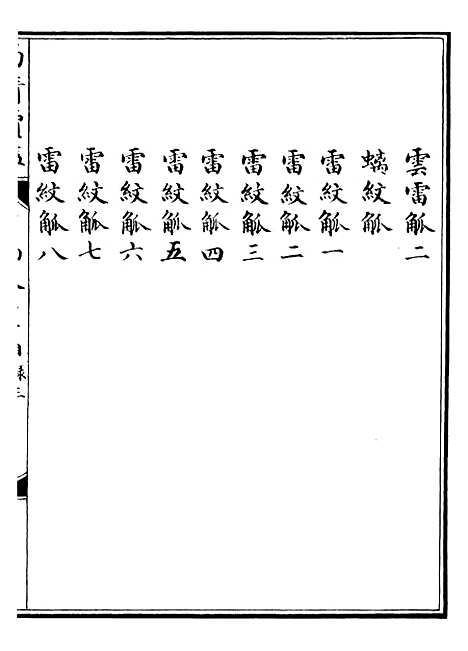 雲雷觚二
螭紋觚
雷紋觚一
雷紋觚二
雷紋觚三
雷紋觚四
雷紋觚五
雷紋觚六
雷紋觚七
雷紋觚八